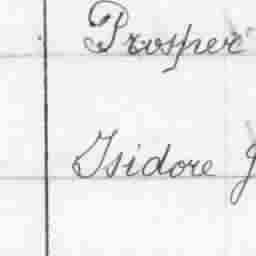 Prosper
Isidore J